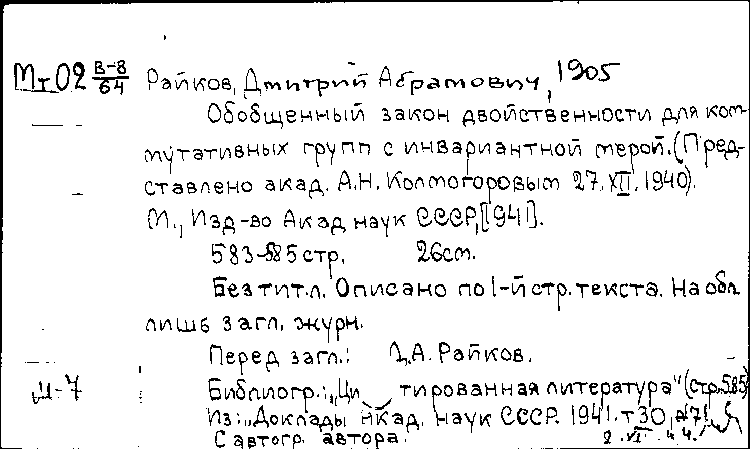 Мт02 В-8/64 Райков, Дмитрий Абрамович, 1905
Обобщенный закон двойственности для ком-
мутативных групп с инвариантной мерой. (Пред-
ставлено акад. А.Н. Колмогоровым 27.XII.1940).
М., Изд-во Акад наук СССР, [1941].
583-585 стр. 26см.
Без тит.л. Описано по 1-й стр. текста. На обл.
лишь загл. журн.
Перед загл.: Д.А. Райков.
Библиогр.: „Цитированная литература" (стр.585)
Из: „Доклады Акад. наук СССР. 1941. т 30, №7".
С автогр. автора.